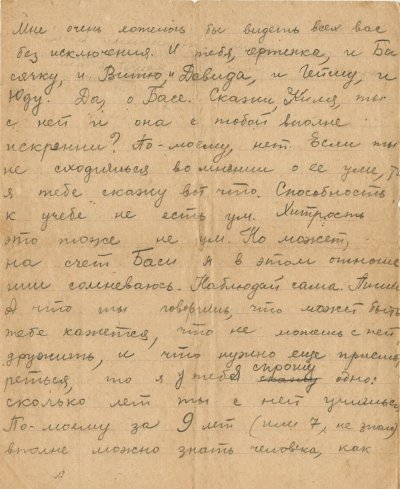 Мне очень хотелось бы видеть всех вас
без исключения. И тебя, чертенка, и Ба
сячку, и Витю, и Давида, и Гейму, и
Юду. Да, о Басе. Скажи, Киля, ты
с ней и она с тобой вполне
искренни? По-моему, нет. Если ты
не сходишься во мнении о ее уме, то
я тебе скажу вот что. Способность
к учебе не есть ум. Хитрость
это тоже не ум. Но может,
на счет Баси я в этом отноше
нии сомневаюсь. Наблюдай сама. Пиши.
А что ты говоришь, что может быть
тебе кажется, что не можешь с ней
дружить, и что нужно еще присмо
реться, то я у тебя спрошу одно:
сколько лет ты с ней училась
По-моему за 9 лет (или 7, не знаю)
вполне можно знать человека, как